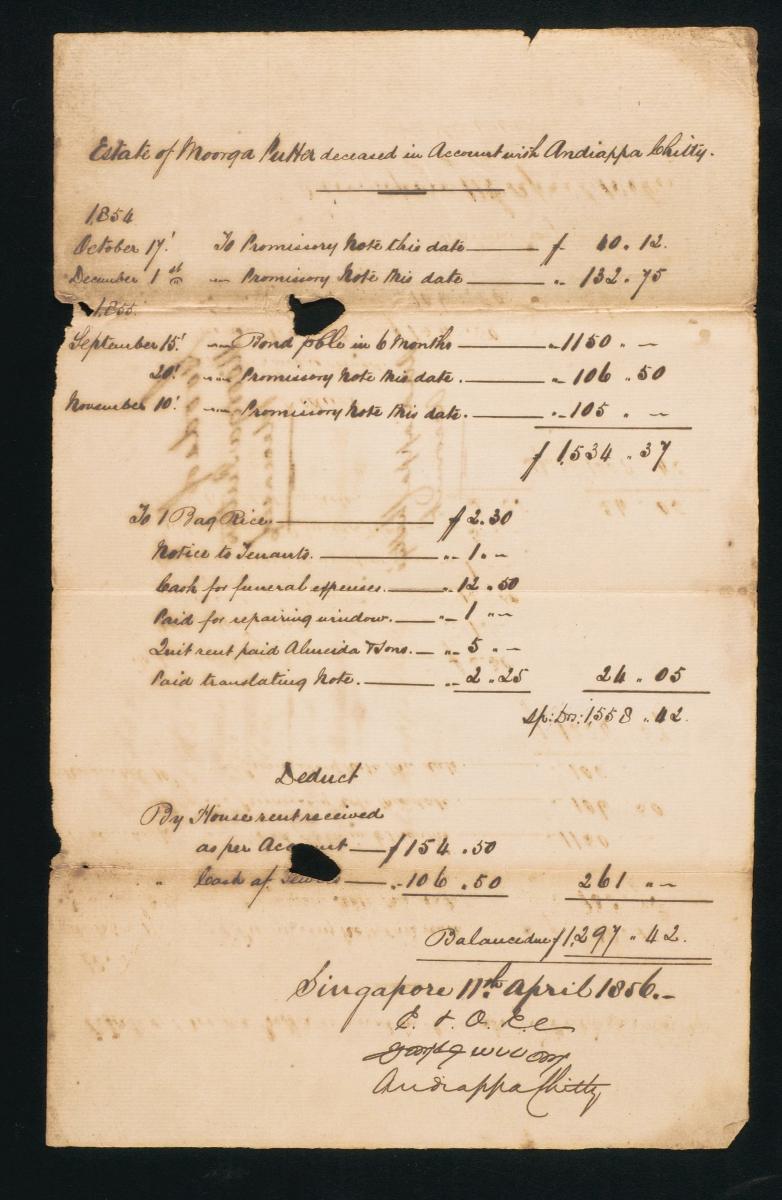 Estate of Moorga Putter deceased in Account with Andiappa Chitty.
1854
October 17! To Promissory Note this date — $ 40 „ 12.
December 1st „ Promissory Note this date — „ 132 „ 75
1855.
September 15! „ Bond pble in 6 Months — „ 1150 „ —
20! „ Promissory Note this date. — „ 106 „ 50
November 10! „ Promissory Note this date. — „ 105 „ —
$ 1,534 „ 37
To 1 Bag Rice — $ 2.30
Notice to Tenants. — „ 1 „ —
Cash for funeral expenses. — „ 12 „ 50
Paid for repairing window. — „ 1 „ —
Quit rent paid Almeida & Sons. — „ 5 „ —
Paid translating Note. — „ 2 „ 25 24 „ 05
Sp: Drs: 1,558 „ 42.
Deduct
By House rent received
as per Account — $ 154 „ 50
„ Cash of — „ 106 „ 50 261 „ —
Balance due $ 1,297 „ 42.
Singapore 11th April 1856.—
E. & O. E.
Andiappa Chitty